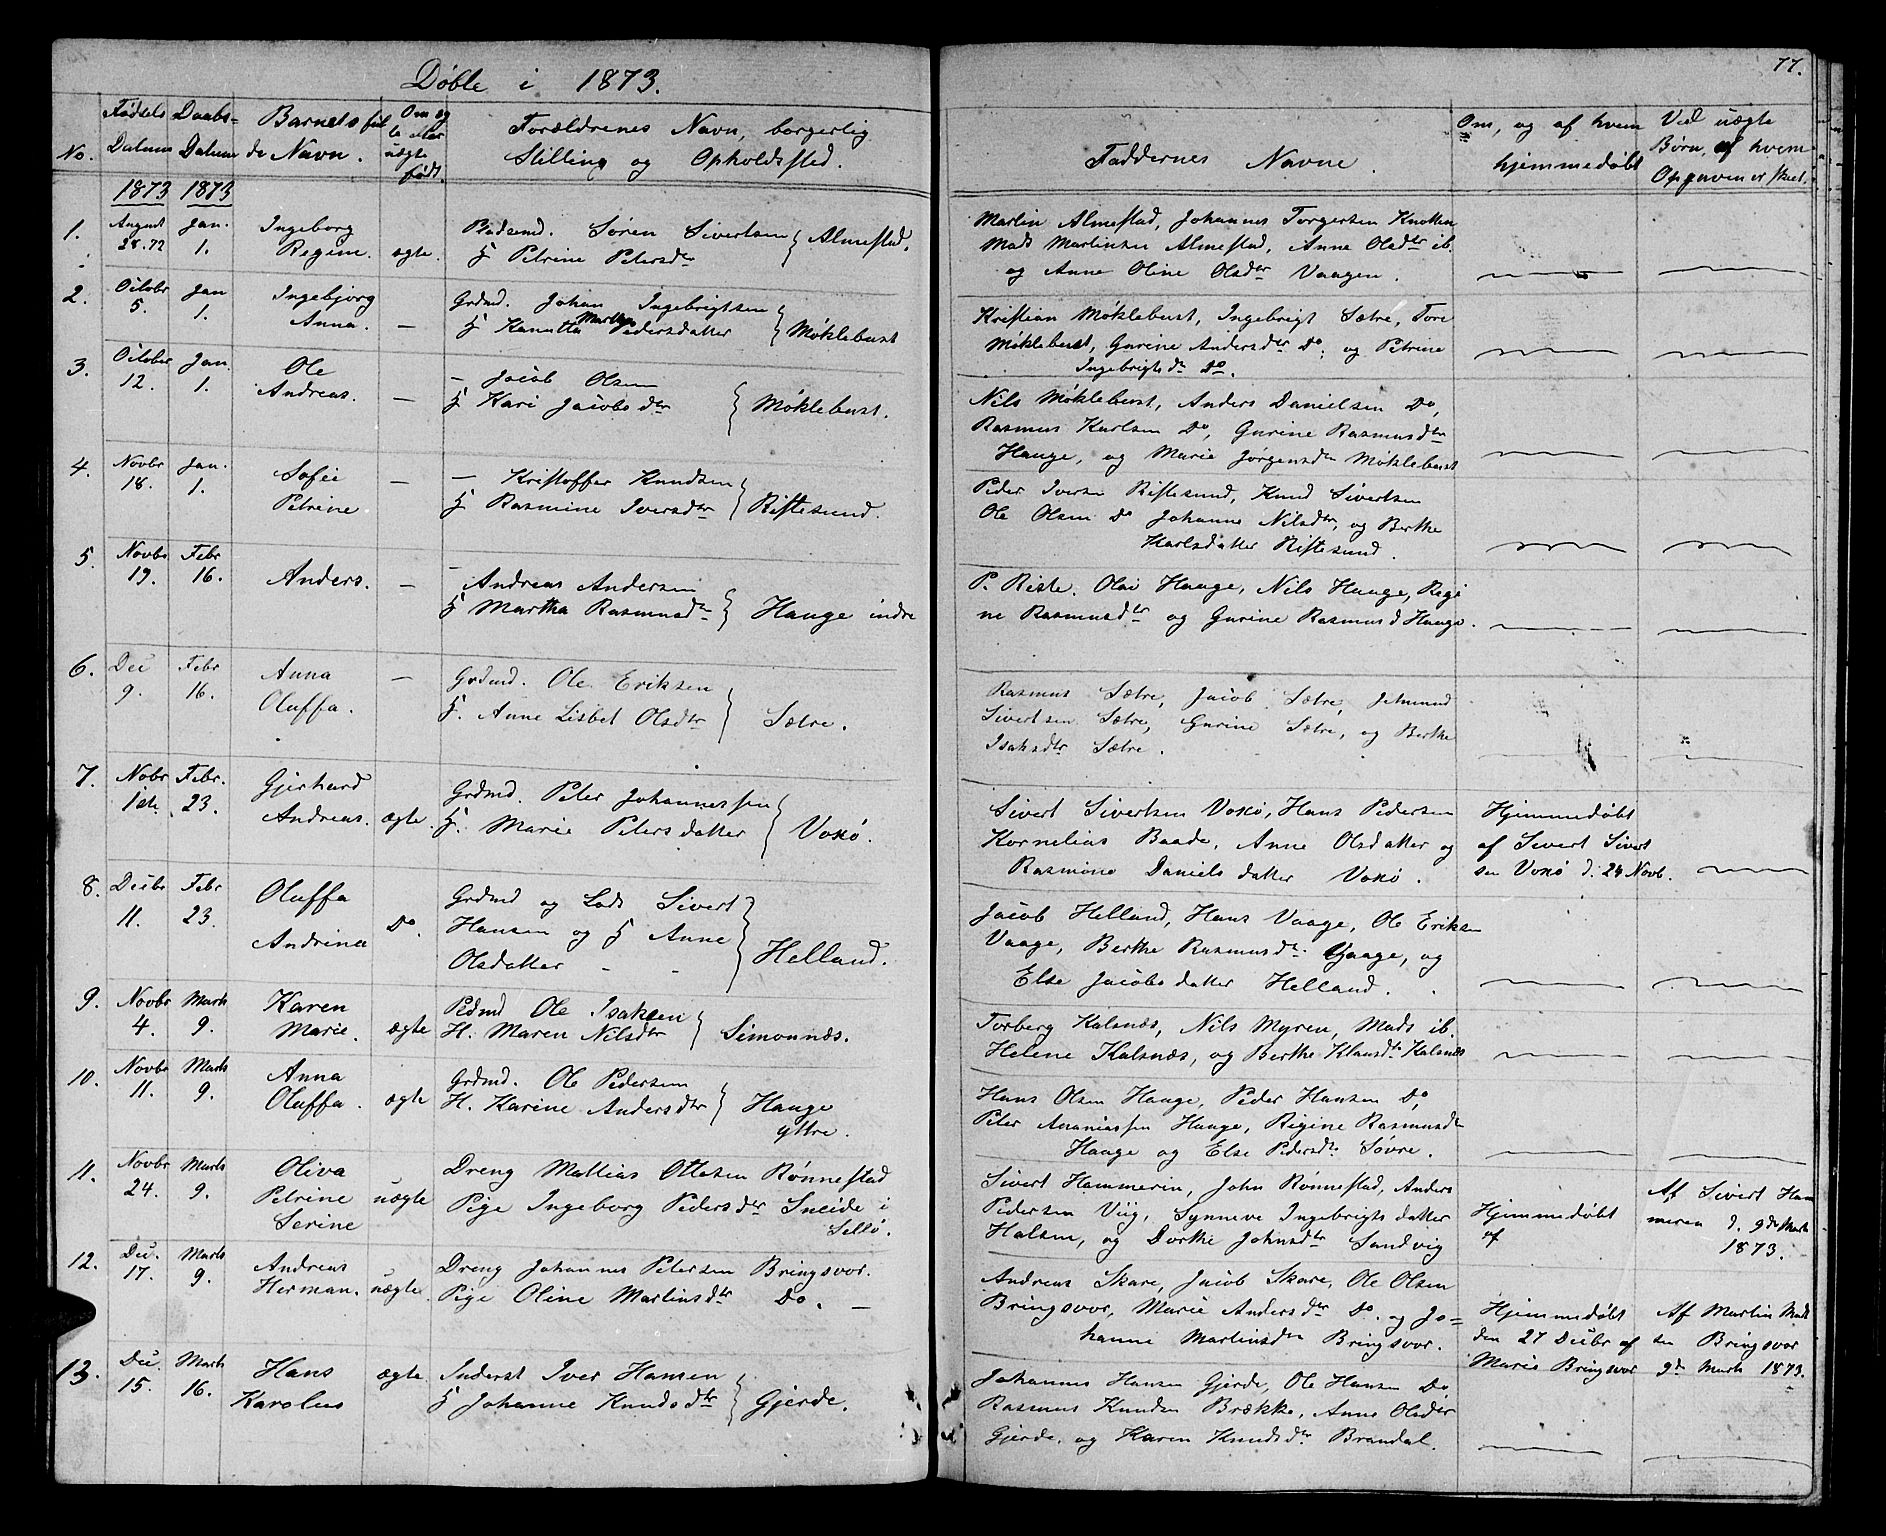 Døbte i 1873.
77.
No.
Fødsels Datum
Daabs- Datum
Barnets fulde Navn.
Om ægte eller uægte født.
Forældrenes Navn, borgerlig Stilling og Opholdssted.
Faddernes Navne.
Om, og af hvem hjemmedøbt
Ved uægte Børn, af hvem Opgaven er skeet.
1873 1873
1. August 28.72 Jan. 1. Ingeborg Regine. ægte.
Pladsmd. Søren Sivertsen
H Petrine Petersdtr } Almestad.
Martin Almestad, Johannes Torgersen Knotten
Mads Martinsen Almestad, Anne Olsdtr ib.
og Anne Oline Olsdtr Vaagen.
2. Octobr 5. Jan 1. Ingebjørg Anna. —
Grdmd. Johan Ingebrigtsen
H Kanutta Marthe Pedersdatter } Møklebust
Kristian Møklebust, Ingebrigt Sætre, Tore
Møklebust, Gurine Andersdtr Do, og Petrine
Ingebrigtsdr Do.
3. October 12. Jan. 1. Ole Andreas. —
— Jacob Olsen
H Kari Jacobsdtr } Møklebust.
Nils Møklebust, Anders Danielsen Do,
Rasmus Karlsen Do, Gurine Rasmusdtr
Hauge, og Marie Jørgensdtr Møklebust
4. Novbr 18. Jan. 1. Sofie Petrine —
— Kristoffer Knudsen
H Rasmine Iversdtr } Riste­sund.
Peder Iversen Ristesund, Knud Sivertsen
Ole Olsen Do Johanne Nilsdtr, og Berthe
Karlsdatter Ristesund.
5. Novbr 19. Febr 16. Anders. —
— Andreas Andersen
H Martha Rasmusdtr } Hauge indre
P. Riste. Olai Hauge, Nils Hauge, Regi
ne Rasmusdtr og Gurine Rasmusd Hauge.
6. Dec 9. Febr 16. Anna Oluffa. —
Grdmd. Ole Eriksen
H. Anne Lisbet Olsdtr } Sætre.
Rasmus Sætre, Jacob Sætre, Jetmund
Sivertsen Sætre, Gurine Sætre, og Berthe
Isaksdtr Sætre.
7. Nobr Febr. 23. Gjerhard Andreas. ægte.
Grdmd. Peter Johannessen
H. Marie Petersdatter } Voxø.
Sivert Sivertsen Voxø, Hans Pedersen
Kornelius Baade, Anne Olsdatter og
Rasmine Danielsdatter Voxø.
Hjemmedøbt
af Sivert Sivert
sen Voxø d. 24 Novb.
8. Decbr 11. Febr 23. Oluffa Andrina Do.
Grdmd og Lods Sivert
Hansen og H Anne
Olsdatter - - } Helland.
Jacob Helland, Hans Vaage, Ole Eriksen
Vaage, Berthe Rasmusdr. Vaage, og
Else Jacobsdatter Helland.
9. Novbr 4. Marts 9. Karen Marie. ægte
Pldmd Ole Isaksen
H. Maren Nilsdtr } Simonnæs.
Torberg Kalsnæs, Nils Myren, Mads ib.
Helene Kalsnæs, og Berthe Klausdtr Kalsnæs
10. Novbr 11. Marts 9. Anna Oluffa. ægte
Grdmd. Ole Pedersen
H. Karine Andersdtr } Hauge yttre.
Hans Olsen Hauge, Peder Hansen Do,
Peter Ananiassen Hauge, Rigine Rasmusdtr
Hauge og Else Pedersdtr Søvre.
11. Novbr 24. Marts 9. Oliva Petrine Serine uægte
Dreng Mattias Ottesen Rønnestad
Pige Ingeborg Pedersdtr Sneide i
Selsø.
Sivert Hammerin, John Rønnestad, Anders
Pedersen Viig, Synneve Ingebrigtsdatter
Halsen, og Dorthe Johnsdtr Sandvig
Hjemmedøbt
af
Af Sivert Ham
meren d. 9de Marts
1873.
12. Dec. 17. Marts 9. Andreas Herman. uægte.
Dreng Johannes Petersen Bringsvor.
Pige Oline Martinsdtr Do. —
Andreas Skare, Jacob Skare, Ole Olsen
Bringsvor, Marie Andersdtr Do. og Jo=
hanne Martinsdtr Bringsvor.
Hjemmedøbt
den 27 Decbr af
Marie Bringsvor
Af Martin Mads
sen Bringsvor
9de Marts 1873.
13. Dec. 15. Marts 16. Hans Karolus ægte
Inderst Iver Hansen
H Johanne Knudsdtr } Gjerde.
Johannes Hansen Gjerde, Ole Hansen Do,
Rasmus Knudsen Brække, Anne Olsdtr
Gjerde, og Karen Knudsdtr Brandal.